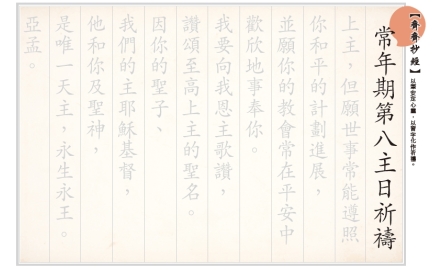 【齊齊抄經】
以筆安定心靈，以習字化作祈禱。
常年期第八主日祈禱
上主，但願世事常能遵照
你和平的計劃進展，
並願你的教會常在平安中
歡欣地事奉你。
我要向我恩主歌讚，
讚頌至高上主的聖名。
因你的聖子、
我們的主耶穌基督，
他和你及聖神，
是唯一天主，永生永王。
亞孟。